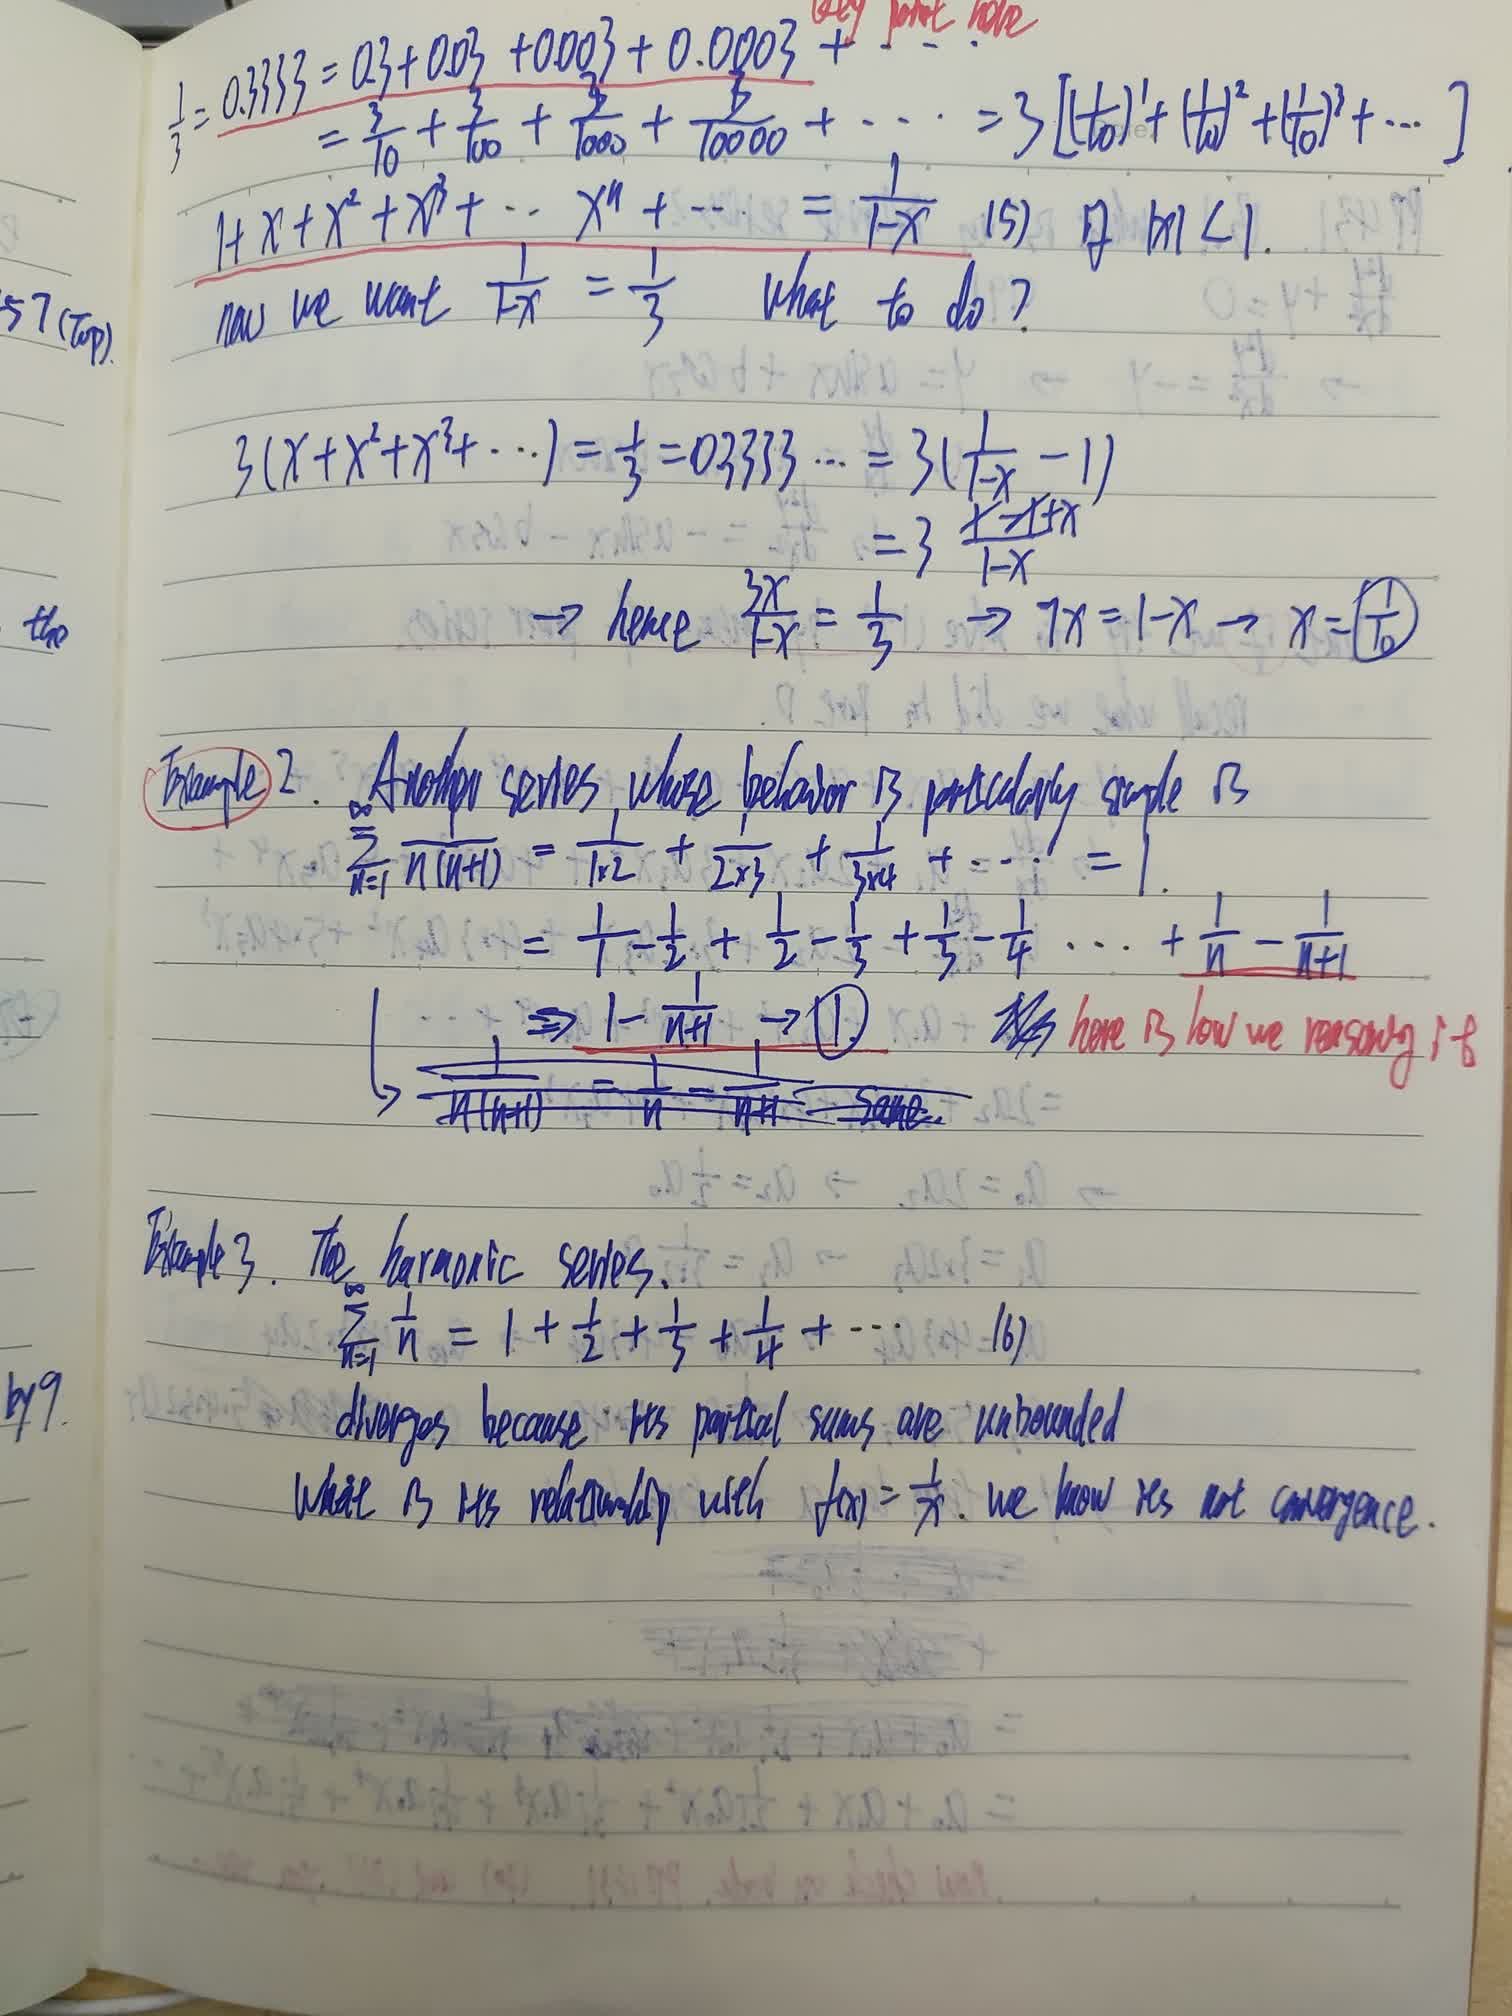 key point here
1/3 = 0.3333 = 0.3 + 0.03 + 0.003 + 0.0003 + ....
= 3/10 + 3/100 + 3/1000 + 3/10000 + .... = 3 [(1/10)¹ + (1/10)² + (1/10)³ + ... ]
1 + x + x² + x³ + ... xⁿ + ... = 1/(1-x) (5) if |x| < 1.
now we want 1/(1-x) = 1/3 what to do?
57 (Top).
3(x + x² + x³ + ...) = 1/3 = 0.3333 ... = 3(1/(1-x) - 1)
= 3 (1-1+x)/(1-x)
→ hence 3x/(1-x) = 1/3 → 9x = 1-x → x = 1/10
the
Example 2. Another series whose behavior is particularly simple is
∞Σn=1 1/(n(n+1)) = 1/(1×2) + 1/(2×3) + 1/(3×4) + .... = 1.
= 1/1 - 1/2 + 1/2 - 1/3 + 1/3 - 1/4 ... + 1/n - 1/(n+1)
⇒ 1 - 1/(n+1) → 1. here is how we reasoning it
1/(n(n+1)) = 1/n - 1/(n+1) same.
Example 3. The harmonic series.
∞Σn=1 1/n = 1 + 1/2 + 1/3 + 1/4 + ... (6)
diverges because its partial sums are unbounded
by 9.
what is its relationship with f(x) = 1/x. we know its not convergence.